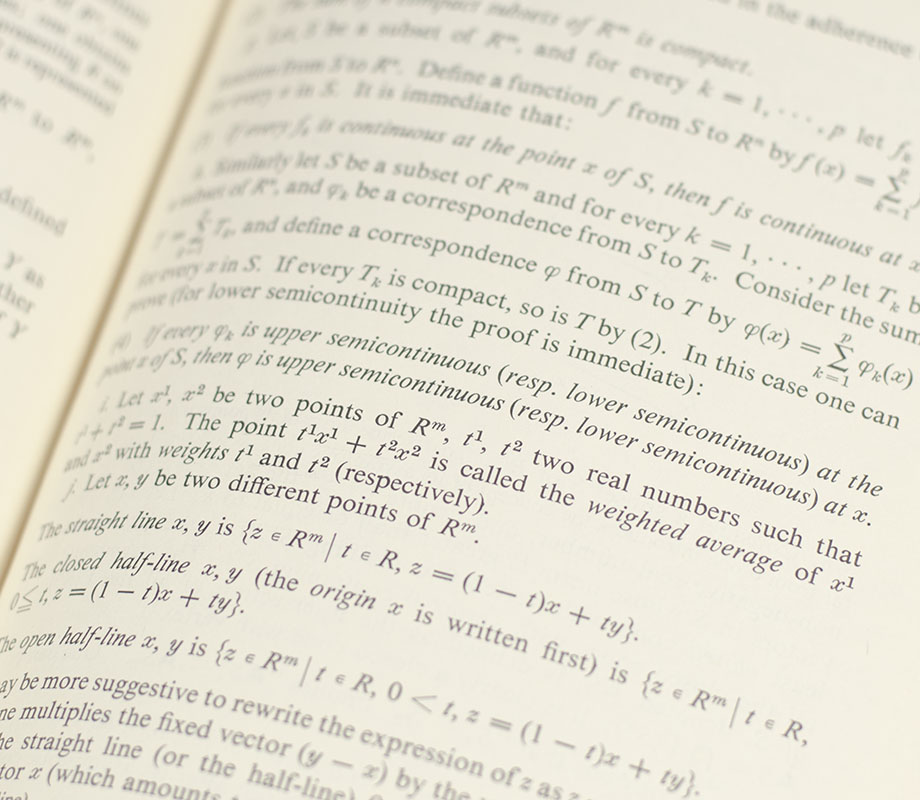 in the adherence
compact subsets of Rᵐ is compact.
be a subset of Rᵐ, and for every k = 1, · · · , p let fₖ
function from S to Rⁿ. Define a function f from S to Rⁿ by f(x) = ∑ₖ₌₁ᵖ
for every x in S. It is immediate that:
If every fₖ is continuous at the point x of S, then f is continuous at x
Similarly let S be a subset of Rᵐ and for every k = 1, · · · , p let Tₖ b
a subset of Rⁿ, and φₖ be a correspondence from S to Tₖ. Consider the sum
T = ∑ Tₖ, and define a correspondence φ from S to T by φ(x) = ∑ₖ₌₁ᵖ φₖ(x)
for every x in S. If every Tₖ is compact, so is T by (2). In this case one can
prove (for lower semicontinuity the proof is immediate):
(4) If every φₖ is upper semicontinuous (resp. lower semicontinuous) at the
point x of S, then φ is upper semicontinuous (resp. lower semicontinuous) at x.
i. Let x¹, x² be two points of Rᵐ, t¹, t² two real numbers such that
t¹ + t² = 1. The point t¹x¹ + t²x² is called the weighted average of x¹
and x² with weights t¹ and t² (respectively).
j. Let x, y be two different points of Rᵐ.
The straight line x, y is {z ∈ Rᵐ | t ∈ R, z = (1 − t)x + ty}.
The closed half-line x, y (the origin x is written first) is {z ∈ Rᵐ | t ∈ R,
0 ≦ t, z = (1 − t)x + ty}.
The open half-line x, y is {z ∈ Rᵐ | t ∈ R, 0 < t, z = (1 − t)x + ty}.
ay be more suggestive to rewrite the expression of z as z
ne multiplies the fixed vector (y − x) by the
he straight line (or the half-line)
tor x (which amounts
line)
Rᵐ to Rⁿ,
defined
Y as
ther
f Y